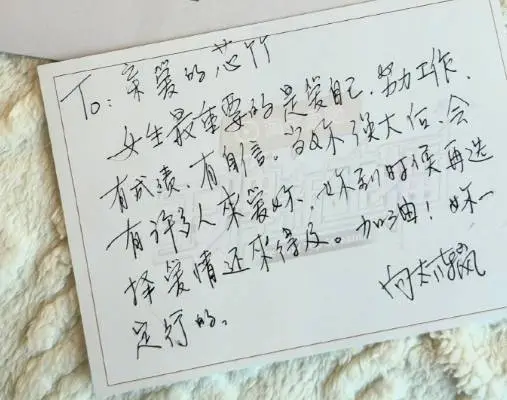 To: 亲爱的芯竹
女生最重要的是爱自己、努力工作、
有成绩、有自信。当妳强大后、会
有许多人来爱妳、妳到时候再选
择爱情还来得及。加油！妳一
定行的。
向太陈岚